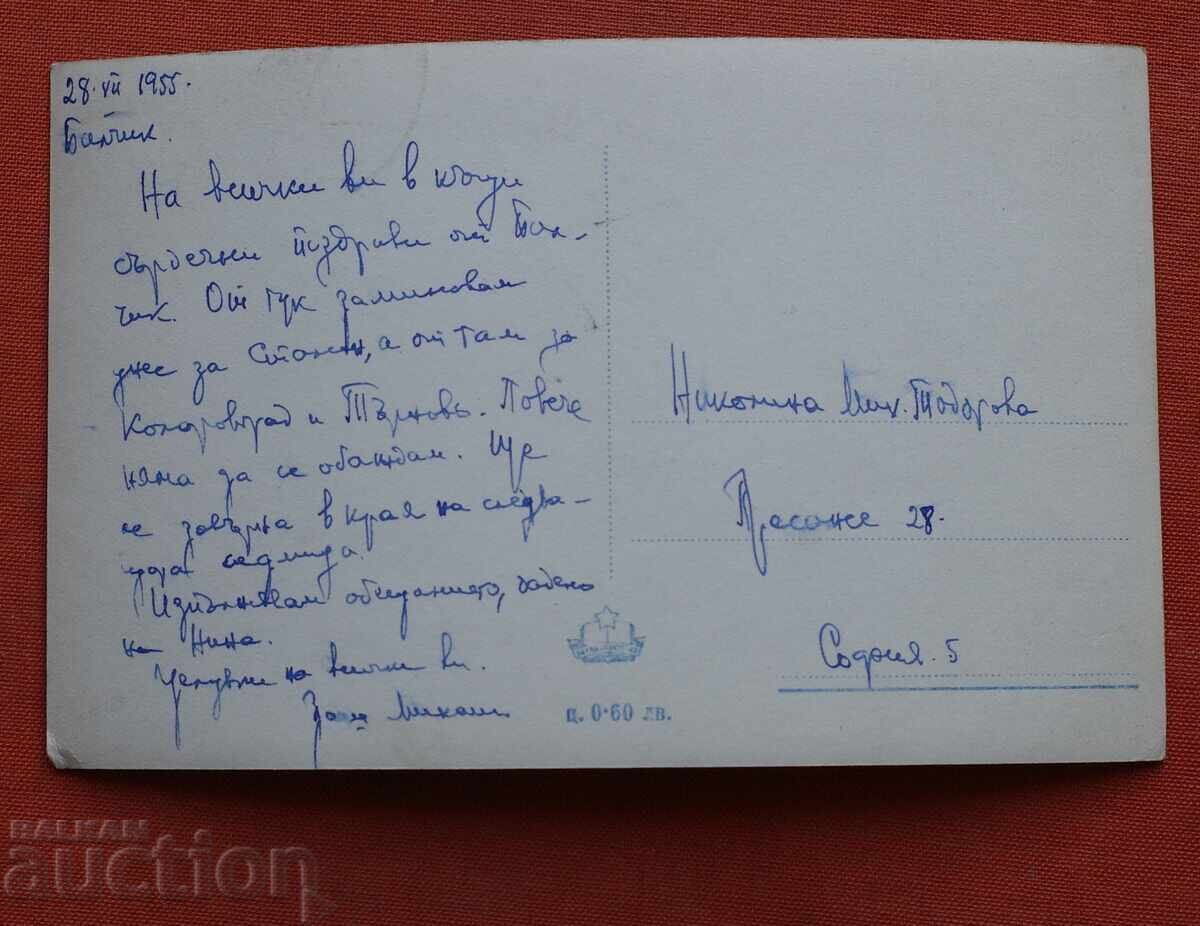 28.VII 1955.
Балчик.
На всички ви в къщи
сърдечни поздрави от Бал-
чик. От тук заминавам
днес за Сталин, а от там за
Коларовград и Търново. Повече
няма да се обаждам. Ще
се завърна в края на следва-
щата седмица.
Изпълнявам обещанието, дадено
на Нина.
Целувки на всички ви.
Ваш
Николина Мих. Тодорова
28.
София. 5
ц. 0·60 лв.
BALKAN
auction